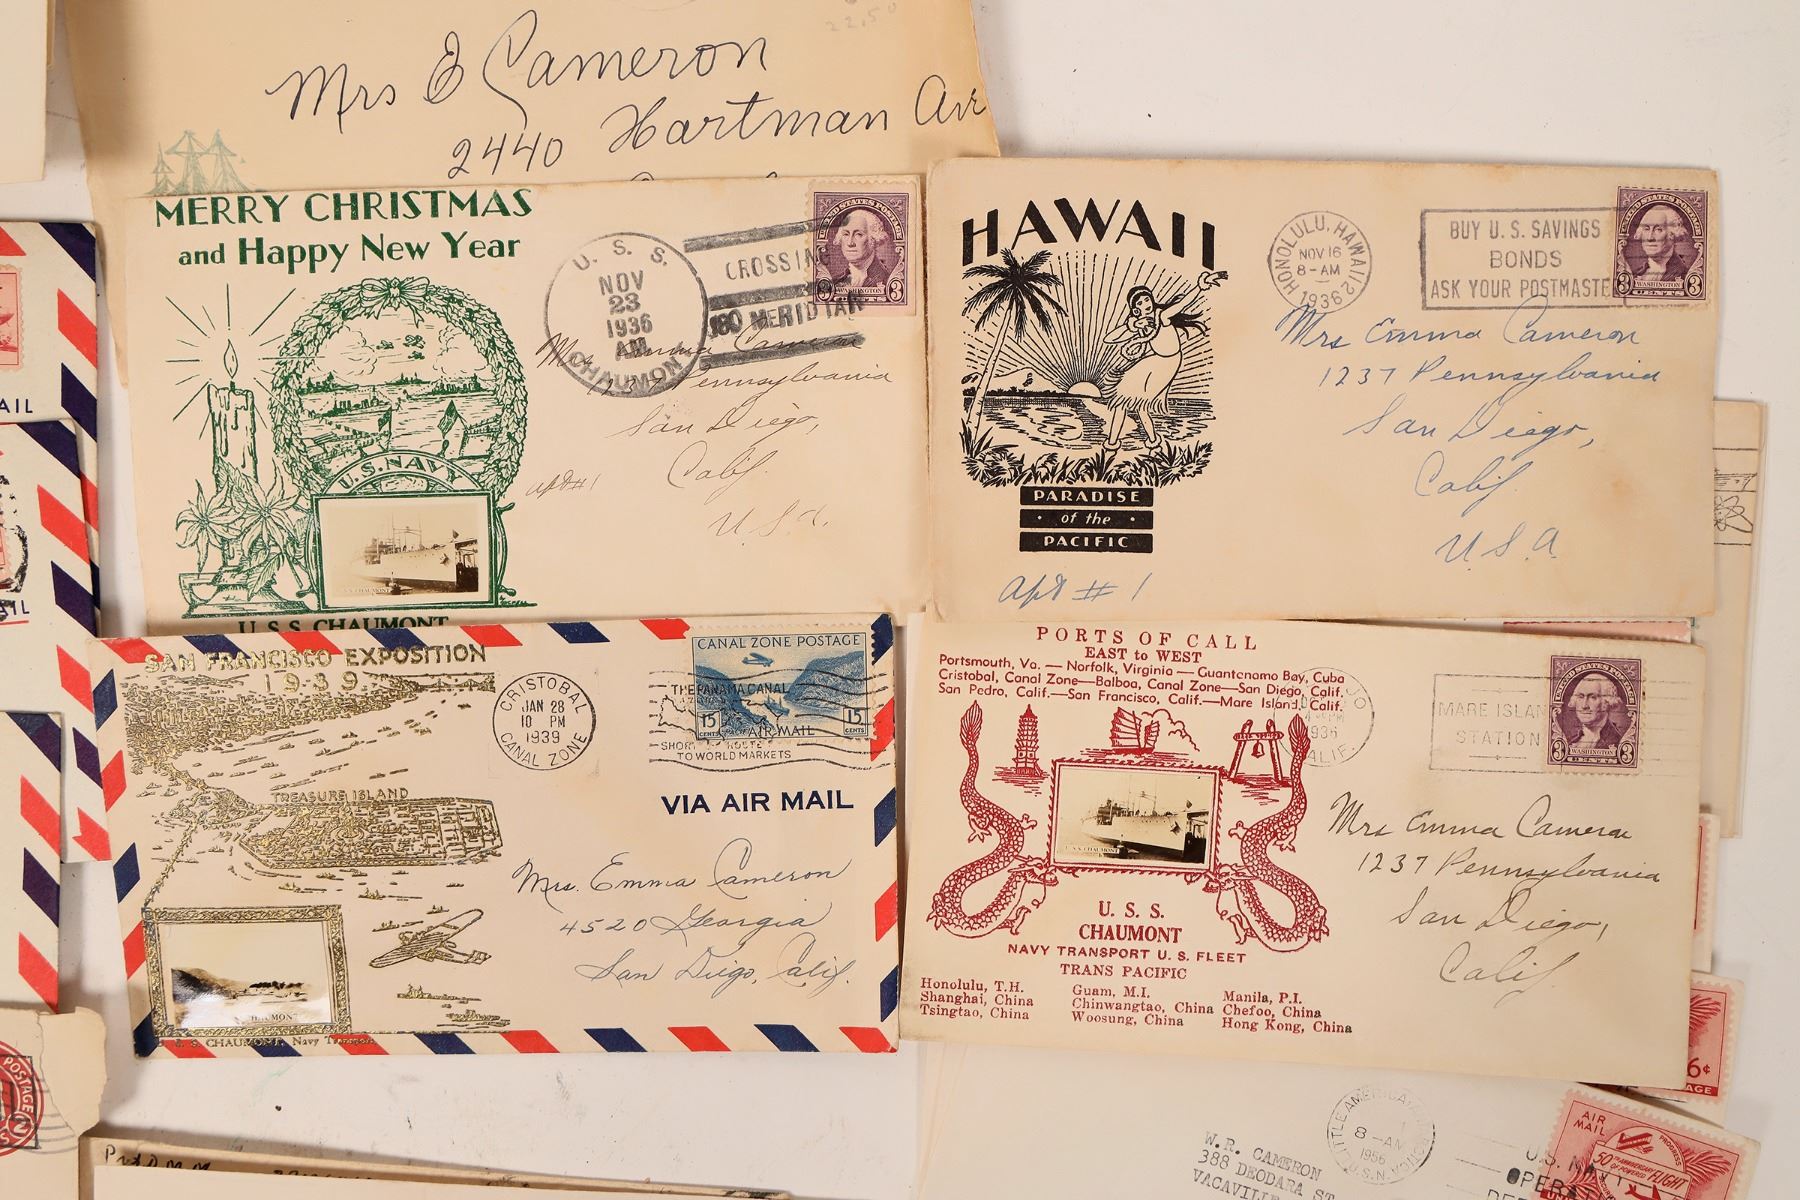 22.50
Mrs E Cameron
2440 Hartman Ave
MERRY CHRISTMAS
and Happy New Year
U. S. S.
NOV
23
1936
AM
CHAUMONT
CROSSING
180 MERIDIAN
UNITED STATES POSTAGE
WASHINGTON
3 CENTS 3
Mrs Emma Cameron
1237 Pennsylvania
San Diego,
Calif.
U.S.A.
apt #1
U.S. NAVY
U.S.S. CHAUMONT
U.S.S. CHAUMONT
HAWAII
PARADISE
of the
PACIFIC
HONOLULU, HAWAII
NOV 16
8-AM
1936
BUY U.S. SAVINGS
BONDS
ASK YOUR POSTMASTE
UNITED STATES POSTAGE
WASHINGTON
3 CENTS 3
Mrs Emma Cameron
1237 Pennsylvania
San Diego,
Calif.
U.S.A.
apt #1
SAN FRANCISCO EXPOSITION
1939
TREASURE ISLAND
CRISTOBAL
JAN 28
10 PM
1939
CANAL ZONE
CANAL ZONE POSTAGE
THE PANAMA CANAL
15 CENTS
AIR MAIL
15 CENTS
SHORT ROUTE
TO WORLD MARKETS
VIA AIR MAIL
Mrs. Emma Cameron
4520 Georgia
San Diego, Calif.
U.S.S. CHAUMONT, Navy Transport
PORTS OF CALL
EAST to WEST
Portsmouth, Va. — Norfolk, Virginia — Guantenamo Bay, Cuba
Cristobal, Canal Zone—Balboa, Canal Zone—San Diego, Calif.
San Pedro, Calif.—San Francisco, Calif.—Mare Island, Calif.
1936
CALIF.
MARE ISLAN
STATION
UNITED STATES POSTAGE
WASHINGTON
3 CENTS 3
U.S.S. CHAUMONT
U. S. S.
CHAUMONT
NAVY TRANSPORT U. S. FLEET
TRANS PACIFIC
Honolulu, T.H.
Shanghai, China
Tsingtao, China
Guam, M.I.
Chinwangtao, China
Woosung, China
Manila, P.I.
Chefoo, China
Hong Kong, China
Mrs Emma Cameron
1237 Pennsylvania
San Diego,
Calif.
AIL
AIL
POSTAGE
2
W.R. CAMERON
388 DEODARA ST
VACAVILLE
LITTLE AMERICA, ANTARCTICA
8-AM
1956
U.S.N.
U.S. NAVY
OPERAT
6¢
AGE
AIR
MAIL
50TH ANNIVERSARY
OF POWERED FLIGHT
PROGRESS